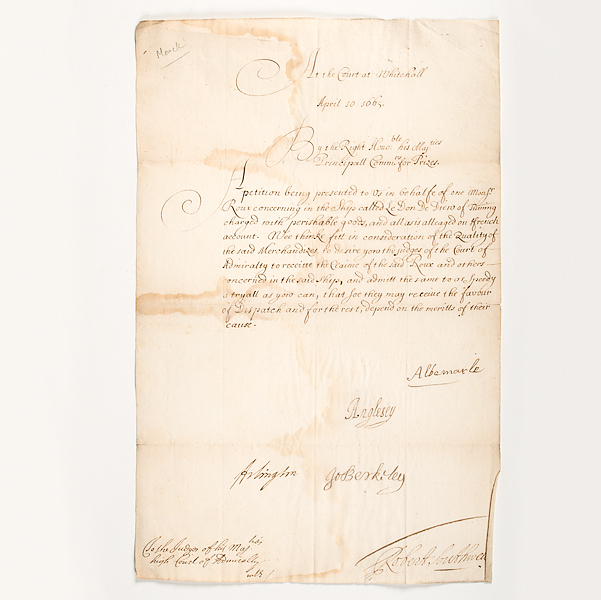 Monck
At the Court at Whitehall
April 10 1665.
By the Right Honoble his Majties
Principall Commrs for Prizes.
A petition being presented to Us in behalfe of one Monsr
Roux concerning in the Ship called Le Don de Dieu of
charged with perishable goods, and all as is alleaged on ffrench
account. Wee thinke fitt in consideration of the Quality of
the said Merchandizes to desire you the judges of the Court of
Admiralty to receive the Claime of the said Roux and others
concerned in the said Ship, and admitt the same to as speedy
a tryall as you can, that soe they may receive the favour
of Dispatch and for the rest, depend on the meritts of their
cause.
Albemarle
Anglesey
Arlington Jo Berkeley
To the Judges of his Majties
high Court of Admiralty
Robert Southwell